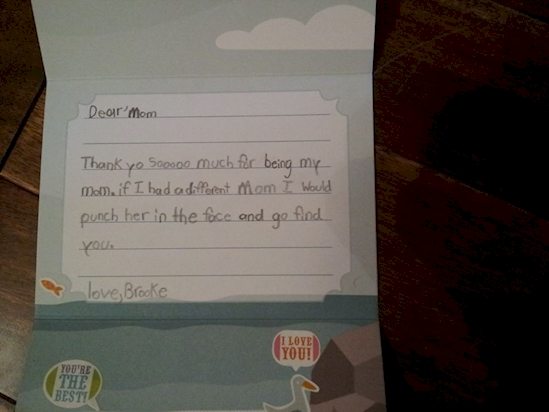 Dear Mom
Thank yo sooooo much for being my
mom. if I had a different Mom I would
punch her in the face and go find
you.
love, Brooke
I LOVE
YOU!
YOU'RE
THE
BEST!